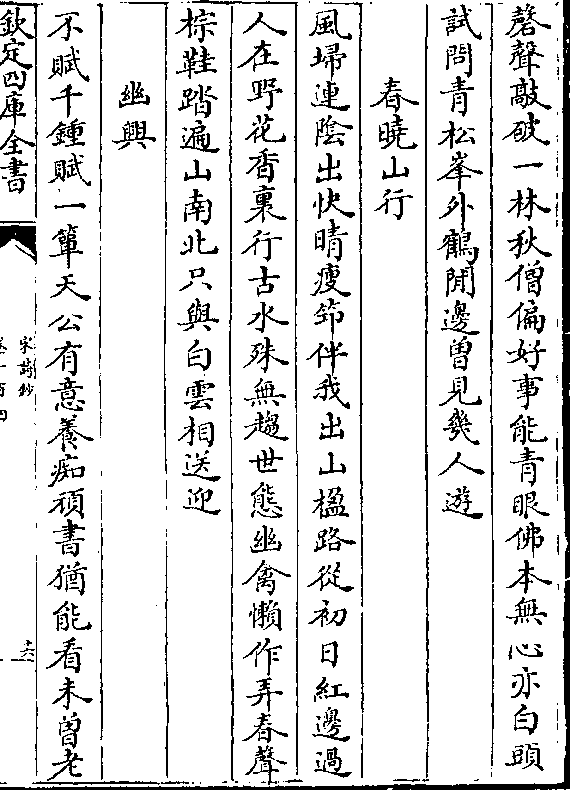 磬聲敲破一林秋僧偏好事能青眼佛本無心亦白頭
試問青松峯外鶴閒邊曽見幾人遊
春曉山行
風埽連陰出快晴瘦筇伴我出山楹路從初日紅邊過
人在野花香裏行古水殊無趨世態幽禽懶作弄春聲
棕鞋踏遍山南北只與白雲相送迎
幽興
不賦千鍾賦一簞天公有意養痴頑書猶能看未曽老
欽定四庫全書
宋詩鈔
十六